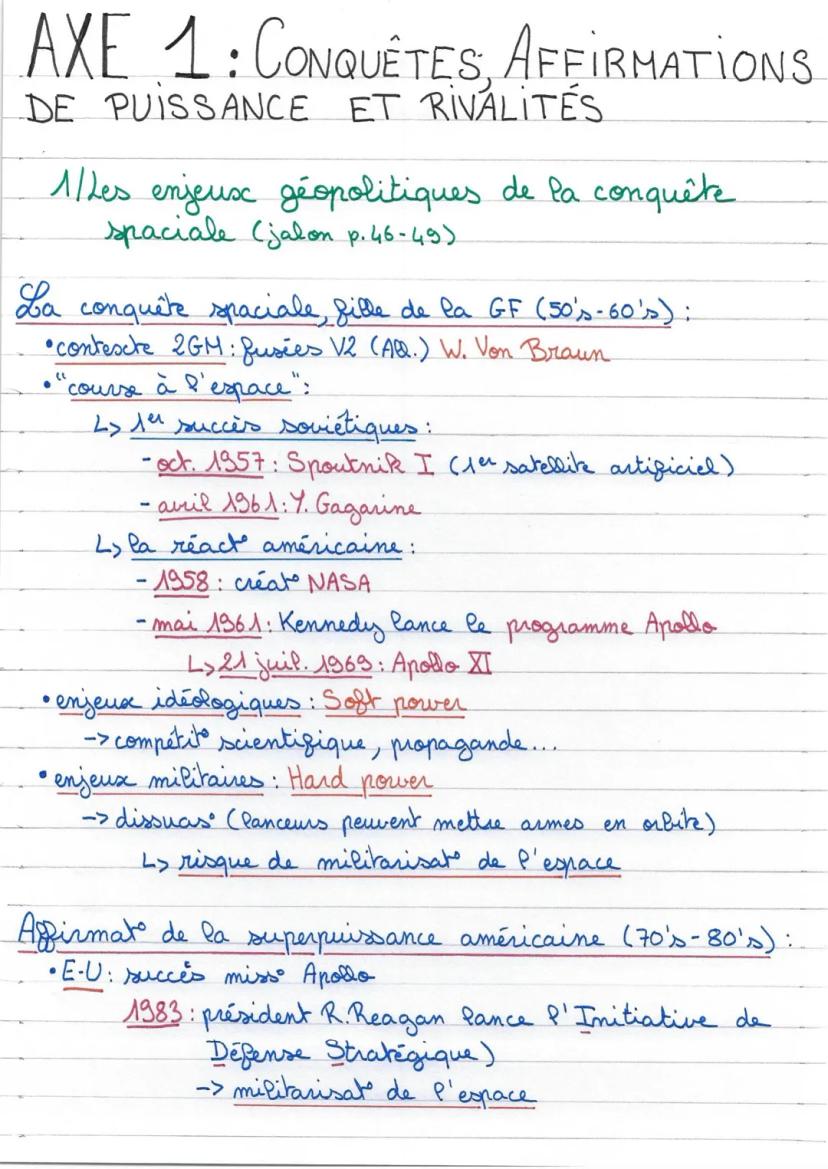 AXE 1 : CONQUÊTES, AFFIRMATIONS
DE PUISSANCE ET RIVALITÉS
1/Les enjeux géopolitiques de la conquête
spaciale (jalon p.46-49)
La conquête spaciale, fille de la GF (50's-60's) :
•contexte 2GM : fusées V2 (All.) W. Von Braun
•"course à l'espace" :
↳ 1er succès soviétiques :
- oct. 1957 : Spoutnik I (1er satellite artificiel)
- avril 1961 : Y. Gagarine
↳ la réact° américaine :
- 1958 : créat° NASA
- mai 1961 : Kennedy lance le programme Apollo
↳ 21 juil. 1969 : Apollo XI
• enjeux idéologiques : Soft power
-> compétit° scientifique, propagande...
• enjeux militaires : Hard power
-> dissuas° (lanceurs peuvent mettre armes en orbite)
↳ risque de militarisat° de l'espace
Affirmat° de la superpuissance américaine (70's-80's) :
• E-U : succès miss° Apollo
1983 : président R.Reagan lance l'Initiative de
Défense Stratégique)
-> militarisat° de l'espace